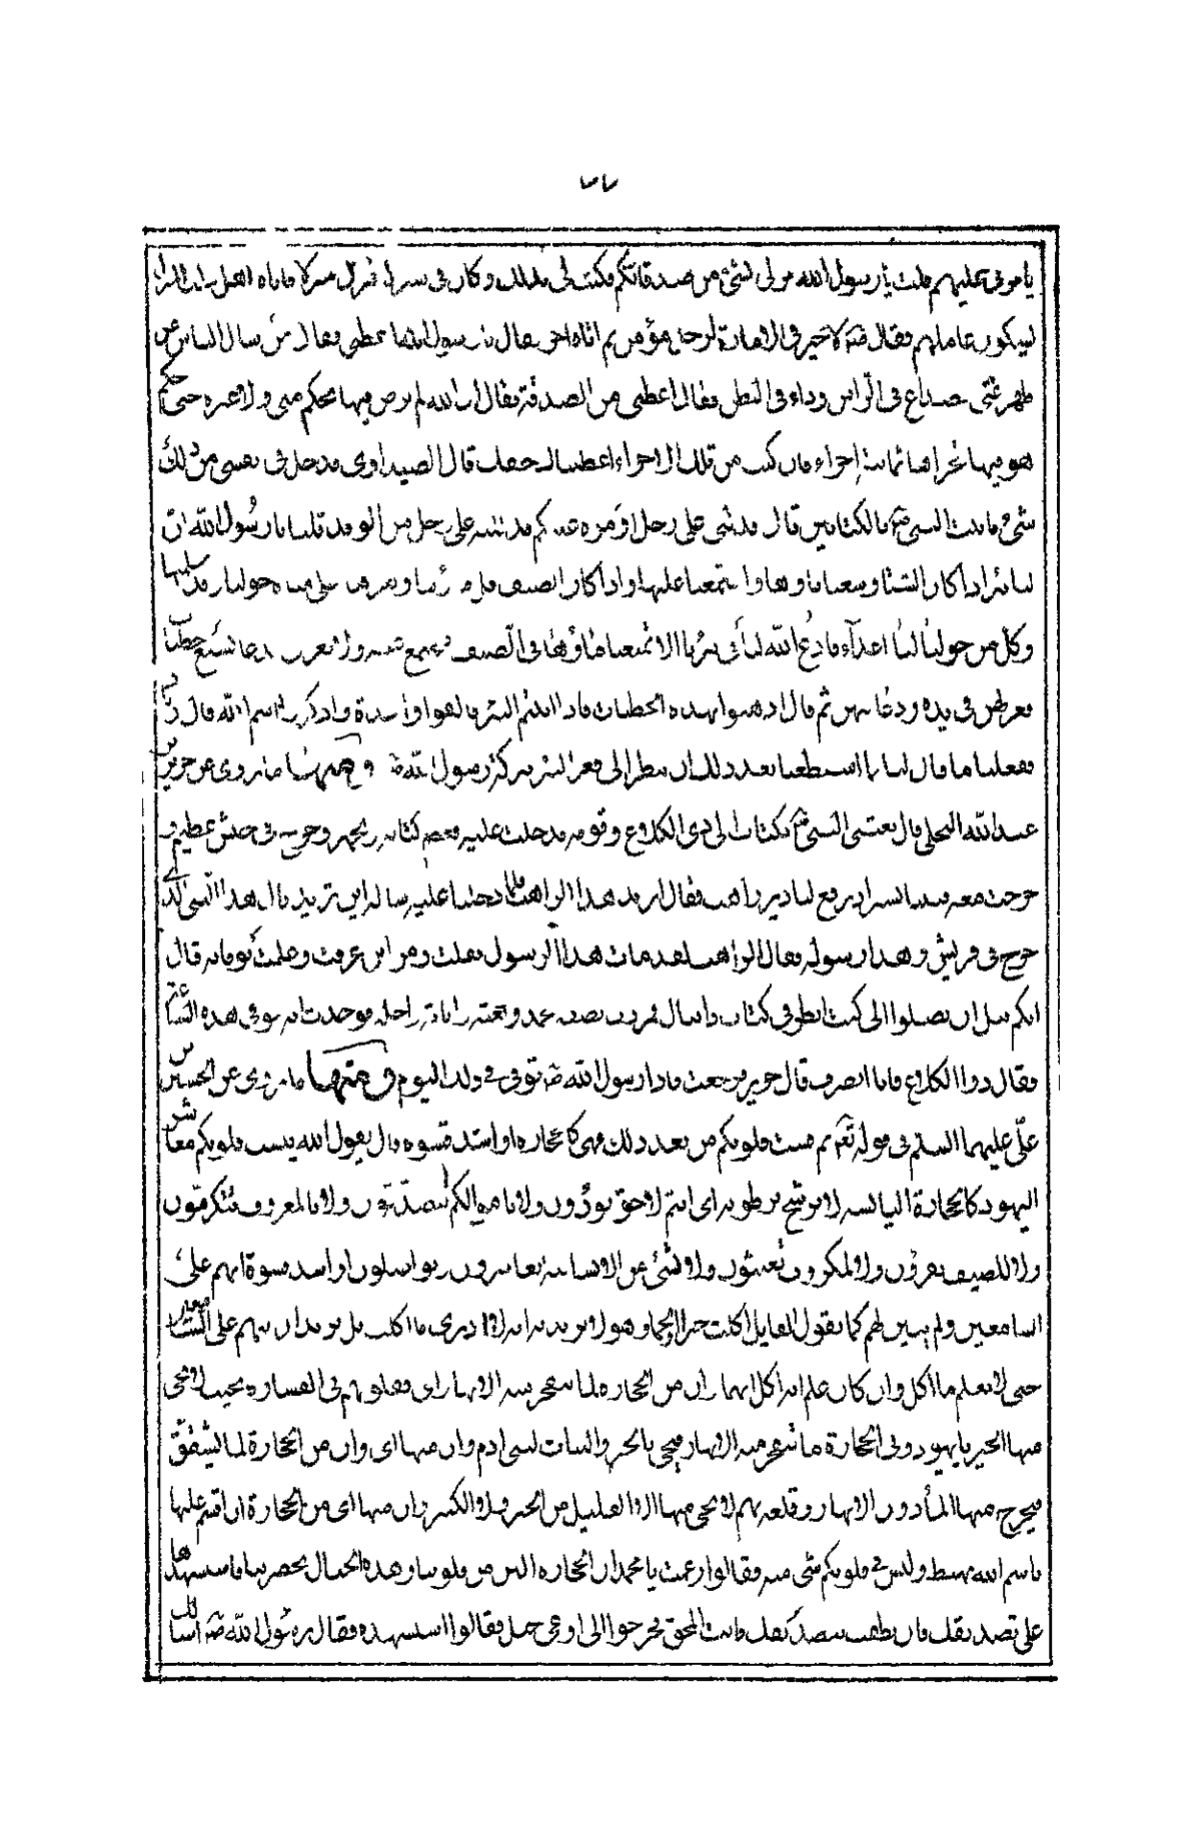 يأمرني عليهم قلت يا رسول الله مر لي بشئ من صدقاتهم فكتب لي بذلك وكان في سفر له فنزل منزلا فاتاه اهل ذلك المنزل
يشكون عاملهم فقال ص لا خير في الامارة لرجل مؤمن ثم اتاه اخر فقال يا رسول الله اعطني فقال من سأل الناس عن
ظهر غنى فصداع في الرأس وداء في البطن فقال اعطني من الصدقة فقال ان الله لم يرض فيها بحكم نبي ولا غيره حتى حكم
هو فيها فجزأها ثمانية اجزاء فان كنت من تلك الاجزاء اعطيتك حقك قال الصيداوي فدخل في نفسي من ذلك
شئ فاتيت النبي ص بالكتابين قال فدلني على رجل اؤمره عليكم فدللته على رجل من الوفد قلنا يا رسول الله ان
لنا بئرا اذا كان الشتاء وسعنا ماؤها واجتمعنا عليها واذا كان الصيف قل ماؤها وتفرقنا على مياه حولنا وقد اسلمنا
وكل من حولنا لنا اعداء فادع الله لنا في بئرنا الا تمنعنا ماؤها في الصيف فنجتمع عليها ولا نتفرق فدعا بسبع حصيات
ففركهن في يده ودعا فيهن ثم قال اذهبوا بهذه الحصيات فاذا اتيتم البئر فالقوا واحدة واحدة واذكروا اسم الله قال زياد
ففعلنا ما قال لنا فما استطعنا بعد ذلك ان ننظر الى قعر البئر ببركة رسول الله ص ومنها ما روي عن جرير بن
عبد الله البجلي قال بعثني النبي ص بكتاب الى ذي الكلاع وقومه فدخلت عليه فعظم كتابه وتجهز وخرج في جيش عظيم و
خرجت معه فبينا نسير اذ رفع لنا دير راهب فقال اريد هذا الراهب فلما دخلنا عليه سأله اين تريد قال هذا النبي الذي
خرج في قريش وهذا رسوله فقال الراهب لقد مات هذا الرسول فقلت ومن اين عرفت وعلمت بوفاته قال
انكم قبل ان تصلوا الي كنت انظر في كتاب دانيال فمررت بصفة محمد ونعته وايامه واجله فوجدت انه توفي في هذه الساعة
فقال ذو الكلاع فانا انصرف قال جرير فرجعت فاذا رسول الله ص توفي في ذلك اليوم ومنها ما روي عن الحسين بن
علي عليهما السلم في قوله تعالى ثم قست قلوبكم من بعد ذلك فهي كالحجارة او اشد قسوة قال يقول الله يبست قلوبكم معاشر
اليهود كالحجارة اليابسة لا ترشح برطوبة اي انتم لا حق تؤدون ولا باموالكم تتصدقون ولا بالمعروف تتكرمون
ولا للضيف تقرون ولا لمكروب تغيثون ولا بشئ من الانسانية تعاشرون وتواصلون او اشد قسوة ابهم على
السامعين ولم يبين لهم كما يقول القايل اكلت خبزا او لحما وهو لا يريد به انه لا ادري ما اكلت بل يريد ان يبهم على السامع
حتى لا يعلم ما اكل وان كان علم انه اكل ايهما وان من الحجارة لما يتفجر منه الانهار اي فقلوبهم في القساوة بحيث لا يجئ
منها الخير يا يهود وفي الحجارة ما يتفجر منه الانهار فيجئ بالخير والنبات لبني ادم وان منها اي وان من الحجارة لما يشقق
فيخرج منه الماء دون الانهار وقلوبهم لا يجئ منها لا القليل من الخير ولا الكثير وان منها اي من الحجارة ان اقسم عليها
باسم الله يهبط وليس في قلوبكم شئ منه فقالوا زعمت يا محمد ان الحجارة الين من قلوبنا وهذه الجبال بحضرتنا فاستشهدها
على تصديقك فان نطقت بتصديقك فانت المحق فخرجوا الى اوعر جبل فقالوا استشهده فقال رسول الله ص اسألك